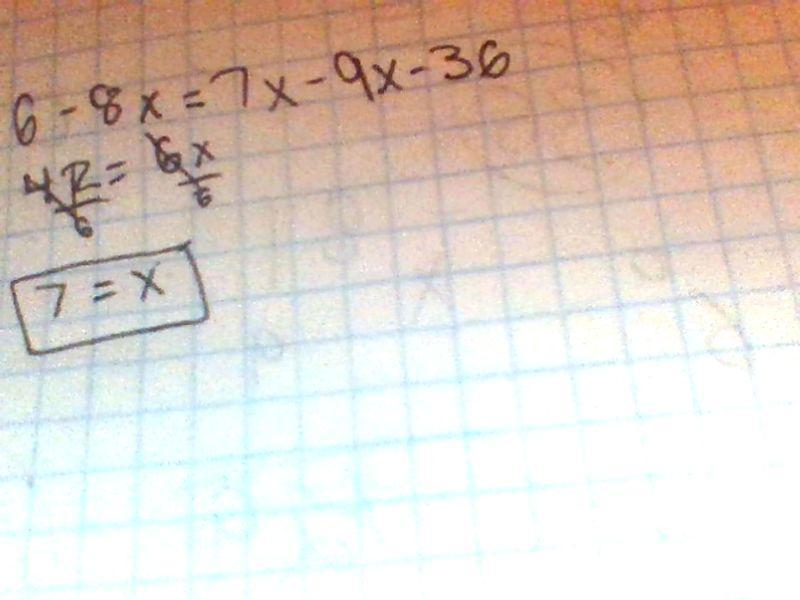 6 - 8x = 7x - 9x - 36
42/6 = 6x/6
7 = x